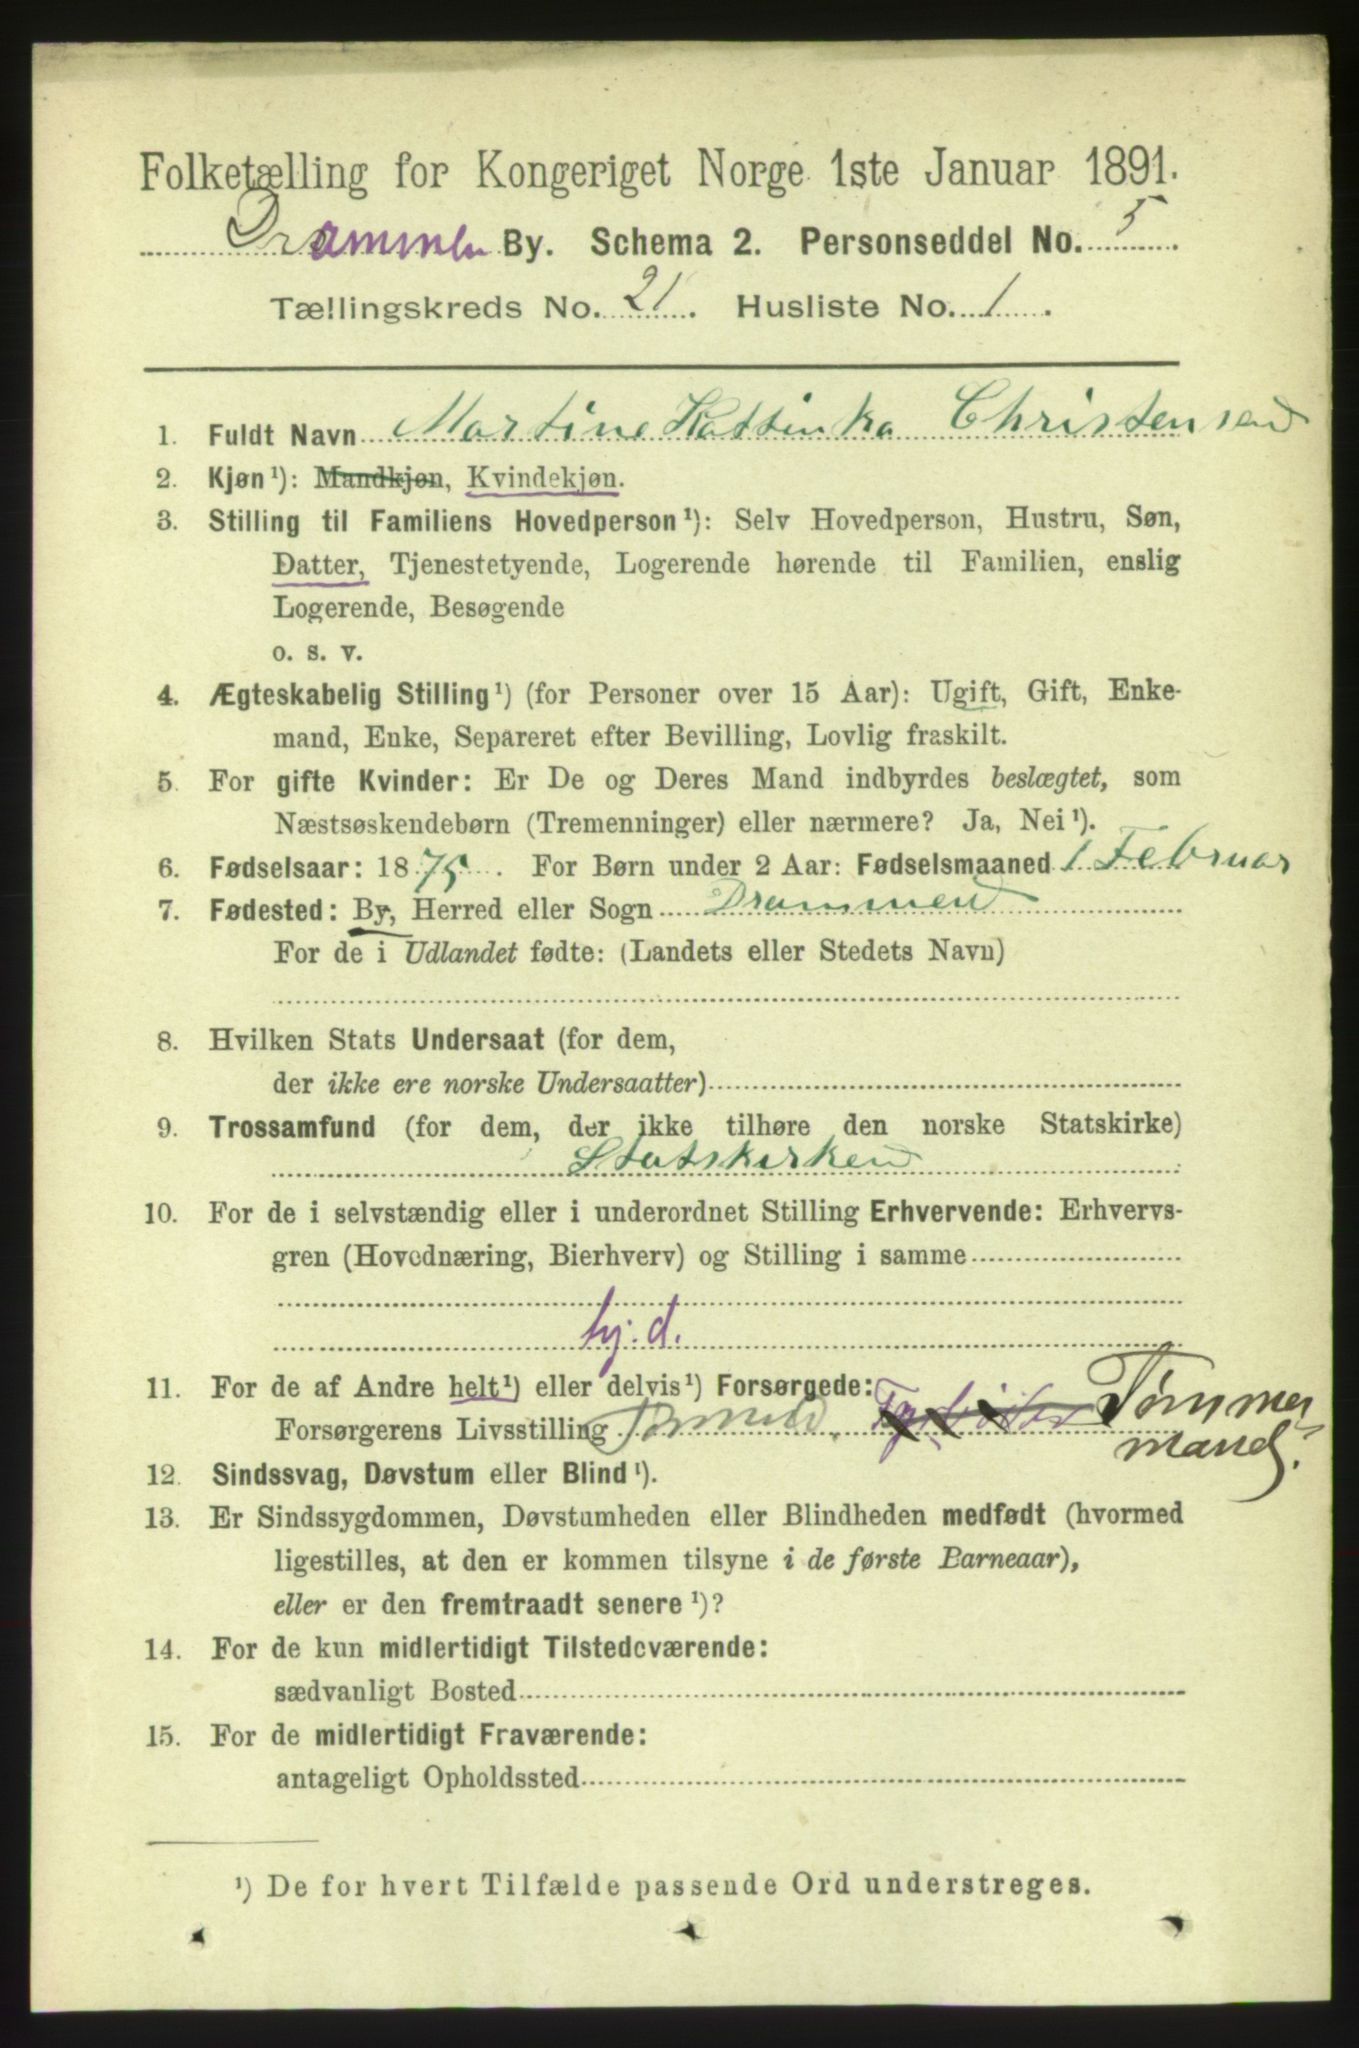 Folketælling for Kongeriget Norge 1ste Januar 1891.
Drammen By. Schema 2. Personseddel No. 5
Tællingskreds No. 21. Husliste No. 1.
1. Fuldt Navn Martine Kattinka Christensen
2. Kjøn¹): Mandkjøn, Kvindekjøn.
3. Stilling til Familiens Hovedperson¹): Selv Hovedperson, Hustru, Søn,
Datter, Tjenestetyende, Logerende hørende til Familien, enslig
Logerende, Besøgende
o. s. v.
4. Ægteskabelig Stilling¹) (for Personer over 15 Aar): Ugift, Gift, Enke-
mand, Enke, Separeret efter Bevilling, Lovlig fraskilt.
5. For gifte Kvinder: Er De og Deres Mand indbyrdes beslægtet, som
Næstsøskendebørn (Tremenninger) eller nærmere? Ja, Nei¹).
6. Fødselsaar: 1875. For Børn under 2 Aar: Fødselsmaaned 1 Februar
7. Fødested: By, Herred eller Sogn Drammen
For de i Udlandet fødte: (Landets eller Stedets Navn)
8. Hvilken Stats Undersaat (for dem,
der ikke ere norske Undersaatter)
9. Trossamfund (for dem, der ikke tilhøre den norske Statskirke)
Statskirken
10. For de i selvstændig eller i underordnet Stilling Erhvervende: Erhvervs-
gren (Hovednæring, Bierhverv) og Stilling i samme
hj. d.
11. For de af Andre helt¹) eller delvis¹) Forsørgede:
Forsørgerens Livsstilling Tømmer
mand.
12. Sindssvag, Døvstum eller Blind¹).
13. Er Sindssygdommen, Døvstumheden eller Blindheden medfødt (hvormed
ligestilles, at den er kommen tilsyne i de første Barneaar),
eller er den fremtraadt senere¹)?
14. For de kun midlertidigt Tilstedeværende:
sædvanligt Bosted
15. For de midlertidigt Fraværende:
antageligt Opholdssted
¹) De for hvert Tilfælde passende Ord understreges.